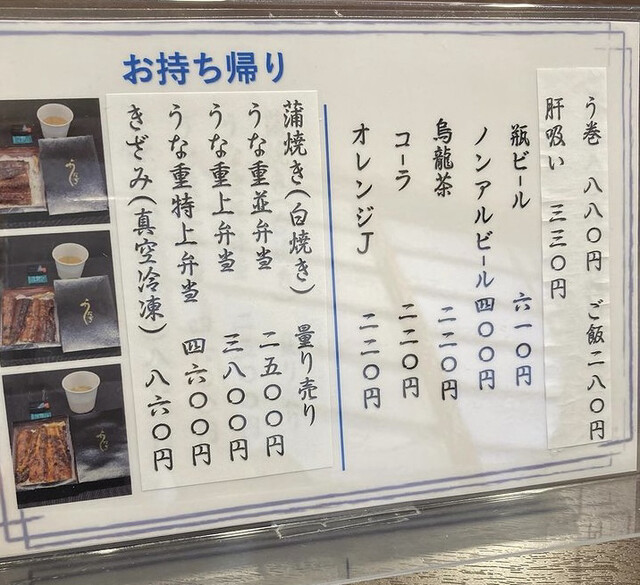 う巻 八八〇円 ご飯二八〇円
肝吸い 三三〇円
瓶ビール 六一〇円
ノンアルビール 四〇〇円
烏龍茶 二二〇円
コーラ 二二〇円
オレンジJ 二二〇円
お持ち帰り
蒲焼き(白焼き) 量り売り
うな重並弁当 二五〇〇円
うな重上弁当 三八〇〇円
うな重特上弁当 四六〇〇円
きざみ(真空冷凍) 八六〇円